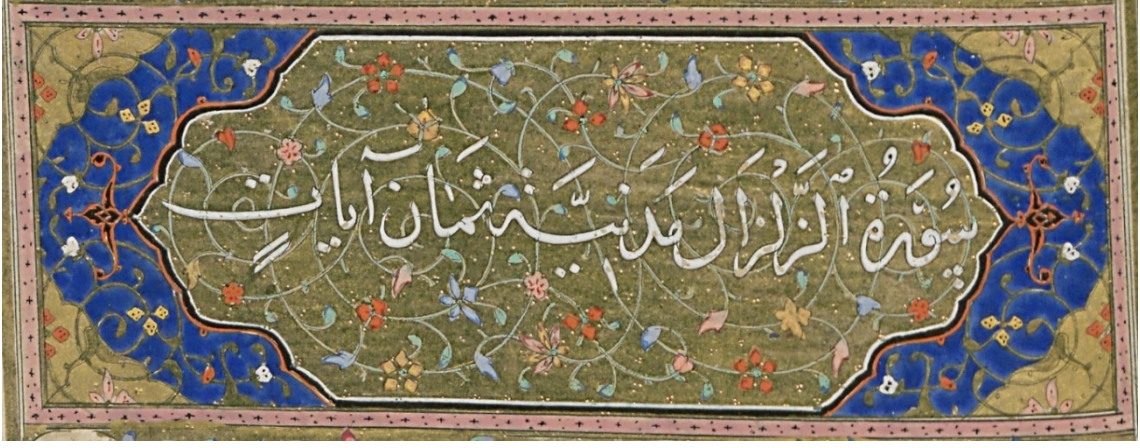 سُورَةُ الزَّلْزَال مَدَنِيَّة ثَمَان آيَاتٍ